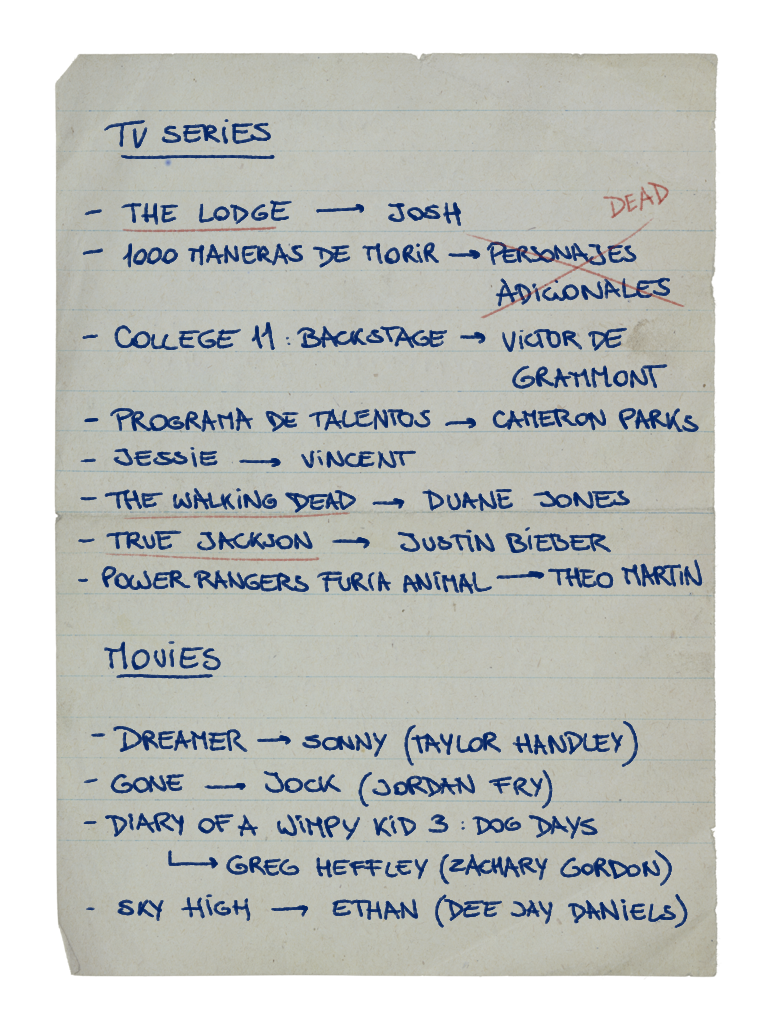 TV SERIES
DEAD
- THE LODGE → JOSH
- 1000 MANERAS DE MORIR → PERSONAJES
ADICIONALES
- COLLEGE 11 : BACKSTAGE → VICTOR DE
GRAMMONT
- PROGRAMA DE TALENTOS → CAMERON PARKS
- JESSIE → VINCENT
- THE WALKING DEAD → DUANE JONES
- TRUE JACKSON → JUSTIN BIEBER
- POWER RANGERS FURIA ANIMAL → THEO MARTIN
MOVIES
- DREAMER → SONNY (TAYLOR HANDLEY)
- GONE → JOCK (JORDAN FRY)
- DIARY OF A WIMPY KID 3 : DOG DAYS
↳ GREG HEFFLEY (ZACHARY GORDON)
- SKY HIGH → ETHAN (DEE JAY DANIELS)